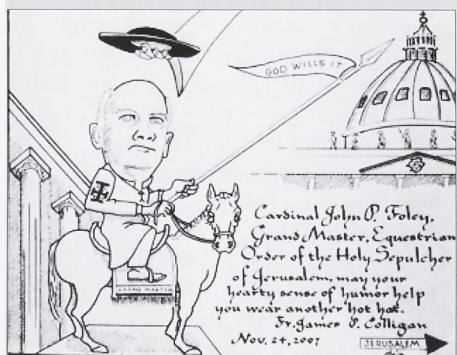 GOD WILLS IT
GRAND MASTER
Cardinal John P. Foley,
Grand Master, Equestrian
Order of the Holy Sepulcher
of Jerusalem, may your
hearty sense of humor help
you wear another hot hat.
Fr. James P. Colligan
Nov. 24, 2007
JERUSALEM